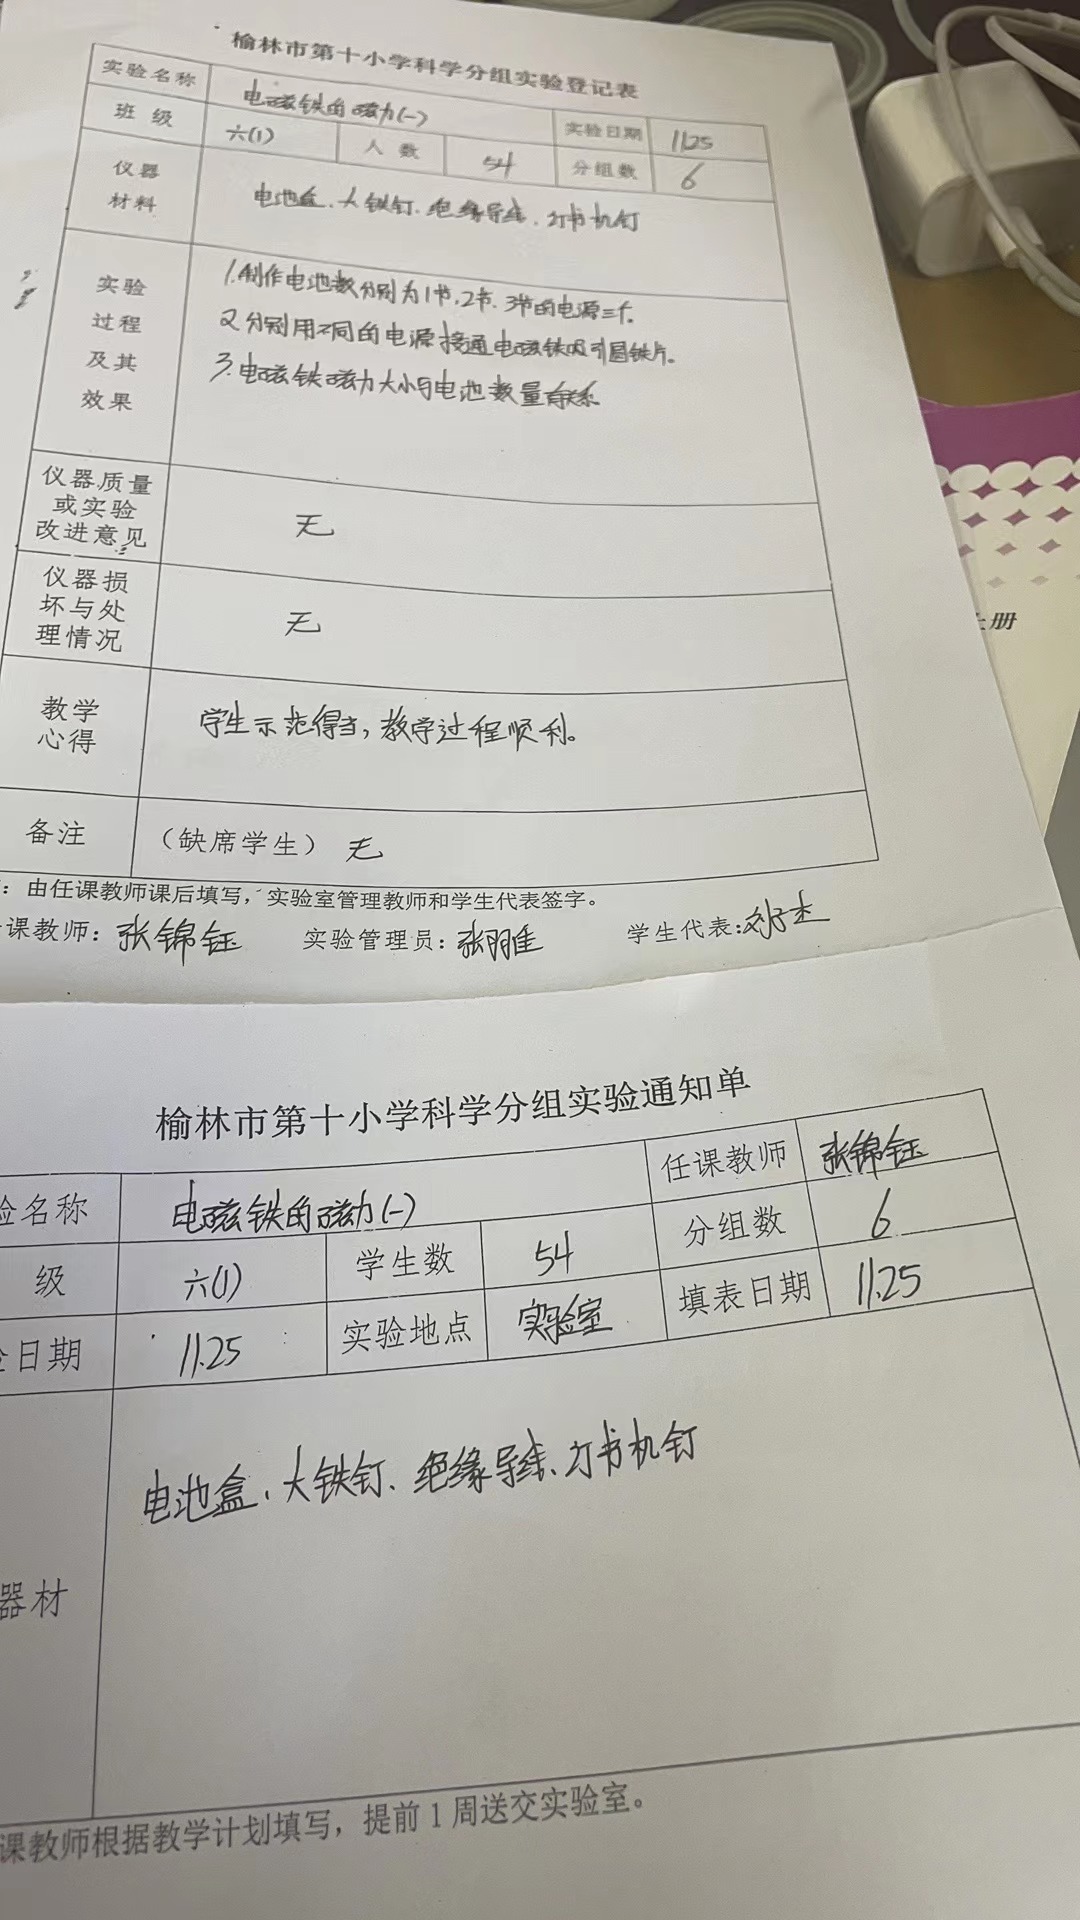 榆林市第十小学科学分组实验登记表
实验名称 电磁铁的磁力(一) 实验日期 11.25
班级 六(1) 人数 54 分组数 6
仪器材料 电池盒、大铁钉、绝缘导线、订书机钉
实验过程及其效果
1.制作电池数分别为1节、2节、3节的电源三个。
2.分别用不同的电源接通电磁铁吸引回铁片。
3.电磁铁磁力大小与电池数量有关系
仪器质量或实验改进意见 无
仪器损坏与处理情况 无
教学心得 学生示范得当，教学过程顺利。
备注 （缺席学生） 无
：由任课教师课后填写，实验室管理教师和学生代表签字。
课教师：张锦钰 实验管理员：张翔佳 学生代表：
上册
榆林市第十小学科学分组实验通知单
验名称 电磁铁的磁力(一) 任课教师 张锦钰
级 六(1) 学生数 54 分组数 6
日期 11.25 实验地点 实验室 填表日期 11.25
器材 电池盒、大铁钉、绝缘导线、订书机钉
课教师根据教学计划填写，提前1周送交实验室。